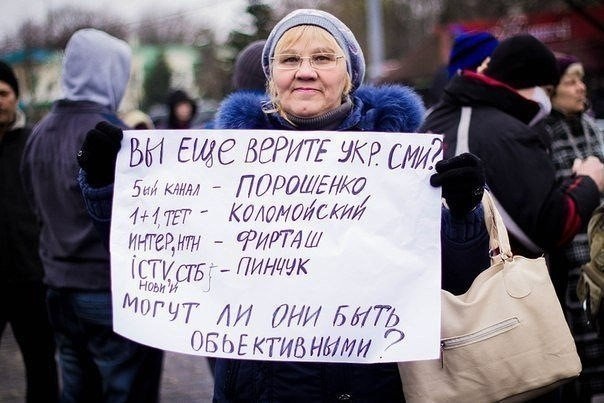 ВЫ ЕЩЕ ВЕРИТЕ УКР. СМИ?
5ЫЙ КАНАЛ - ПОРОШЕНКО
1+1, ТЕТ - КОЛОМОЙСКИЙ
ИНТЕР, НТН - ФИРТАШ
iCTV, СТБ } - ПИНЧУК
НОВИЙ
МОГУТ ЛИ ОНИ БЫТЬ
ОБЬЕКТИВНЫМИ?